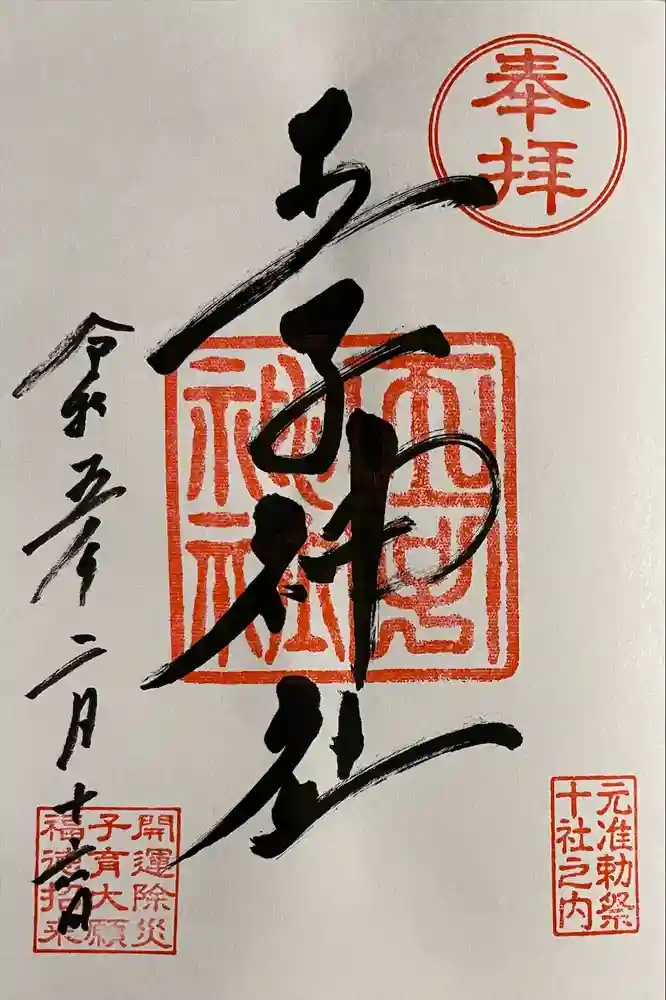 奉拝
王子神社
王子神社
元准勅祭
十社之内
令和五年二月十六日
開運除災
子育大願
福徳招来